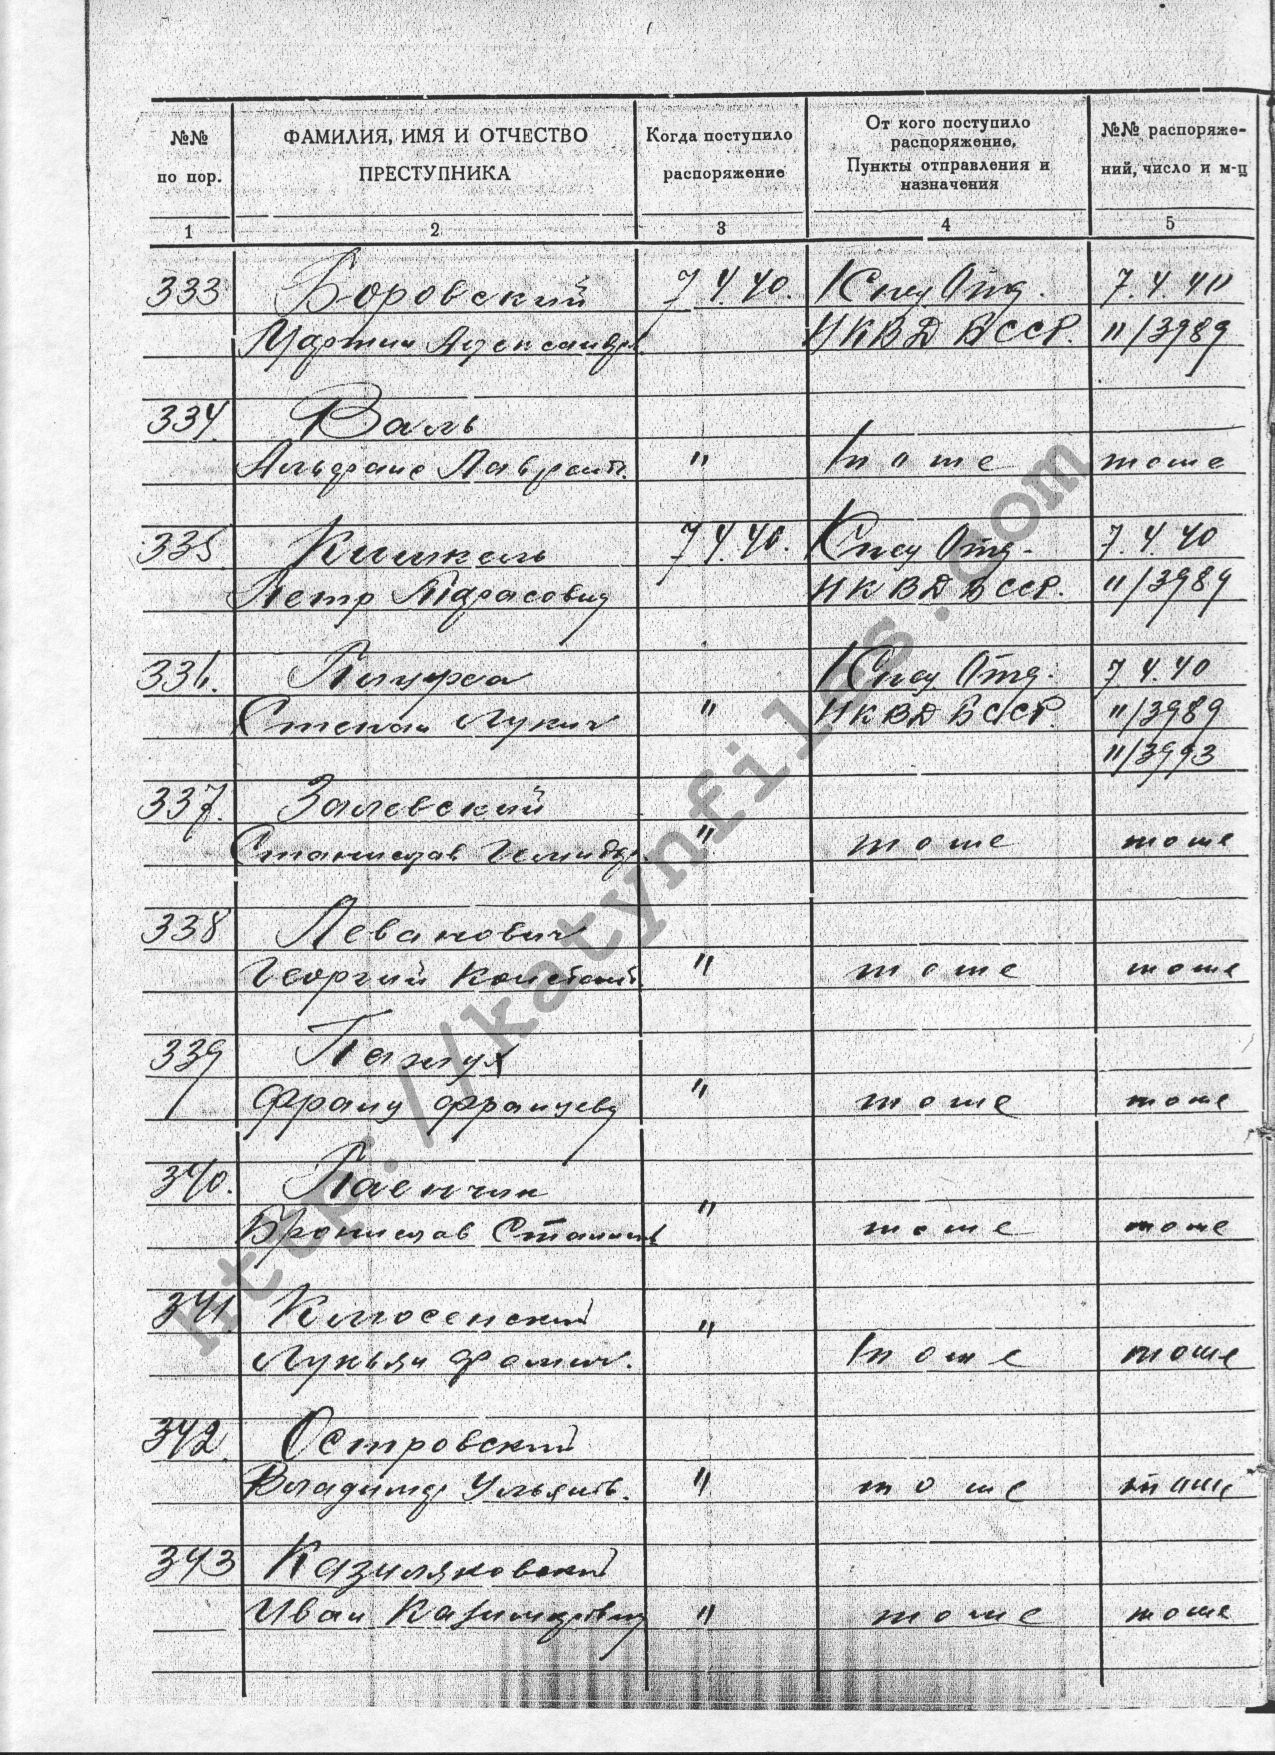 №№ по пор.
ФАМИЛИЯ, ИМЯ И ОТЧЕСТВО ПРЕСТУПНИКА
Когда поступило распоряжение
От кого поступило распоряжение, Пункты отправления и назначения
№№ распоряже-ний, число и м-ц
1 2 3 4 5
333 Боровский 7.4.40. Спец Отд. 7.4.40
Мартин Александр. НКВД БССР. "/3989
334. Валь
Альфонс Лаврент. " тоже тоже
335 Кишкель 7.4.40. Спец Отд. 7.4.40
Петр Тарасович НКВД БССР. "/3989
336. Спец Отд. 7.4.40
Степан Лукич " НКВД БССР. "/3989
"/3993
337. Залевский
Станислав " тоже тоже
338 Леванович
Георгий Констант. " тоже тоже
339
Франц Францевич " тоже тоже
340. Раенчик
Бронислав Станисл " тоже тоже
341.
Лукьян Фомич. " тоже тоже
342. Островский
Владимир Ульянов. " тоже тоже
343
Иван Казимирович " тоже тоже
http://katynfiles.com